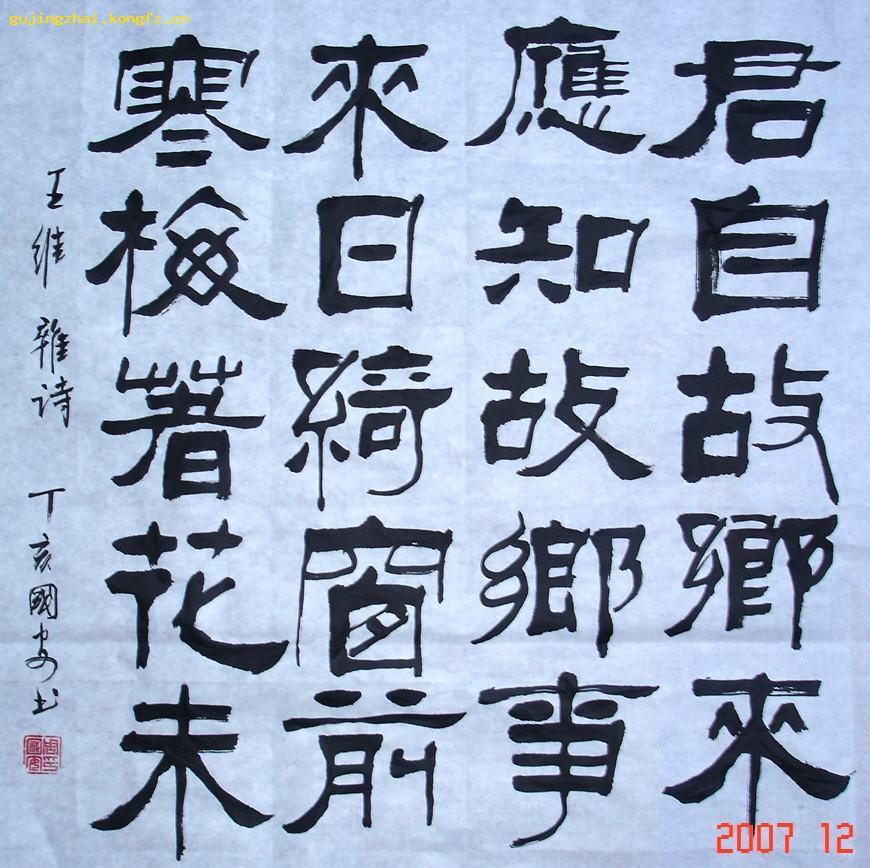 君自故鄉來
應知故鄉事
來日綺窗前
寒梅著花未
王維雜诗 丁亥國安书
gujingzhai.kongfz.cn
2007 12